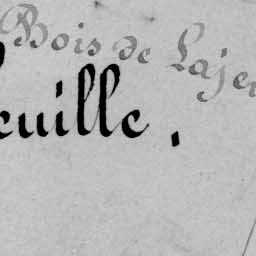 Bois de Lajeu
euille.